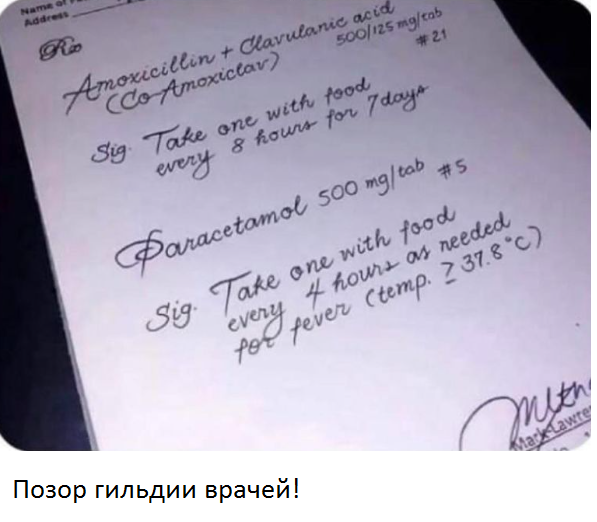 Name of
Address
Rx
Amoxicillin + Clavulanic acid
(Co-Amoxiclav) 500/125 mg/tab
#21
Sig. Take one with food
every 8 hours for 7 days
Paracetamol 500 mg/tab #5
Sig. Take one with food
every 4 hours as needed
for fever (temp. ≥ 37.8°C)
Mark Lawre
Позор гильдии врачей!